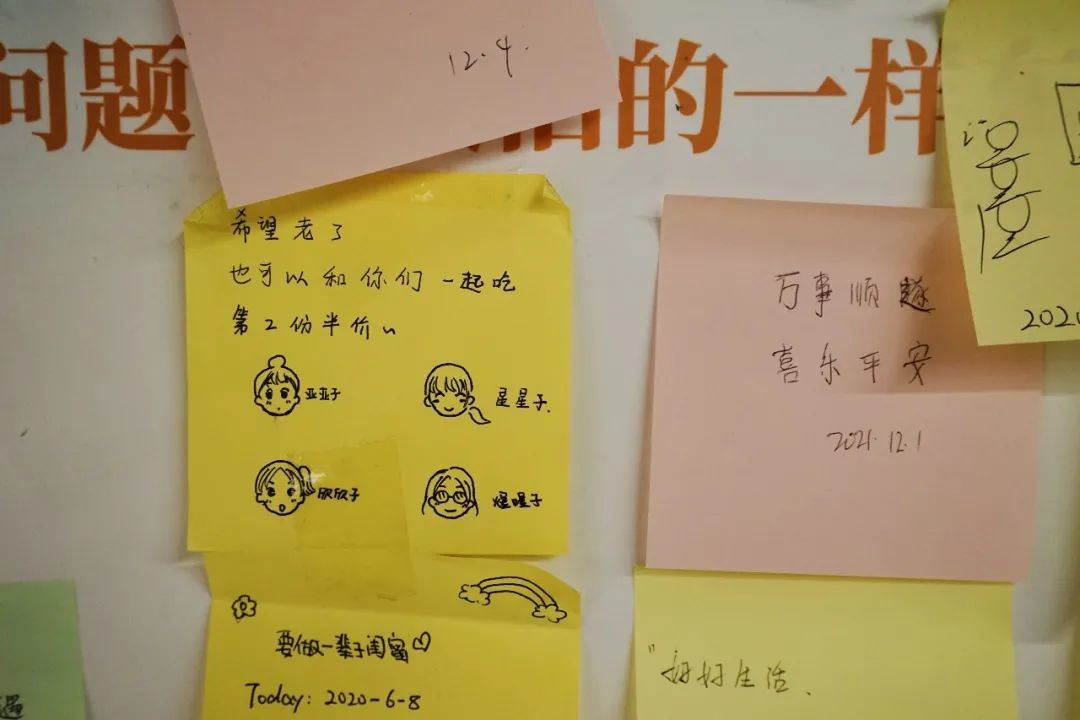 问题
的一样
12.4.
希望老了
也可以和你们一起吃
第2份半价~
亚亚子
星星子.
欣欣子
煜煜子
要做一辈子闺蜜♡
Today: 2020-6-8
万事顺遂
喜乐平安
2021.12.1
"好好生活.
202
遇